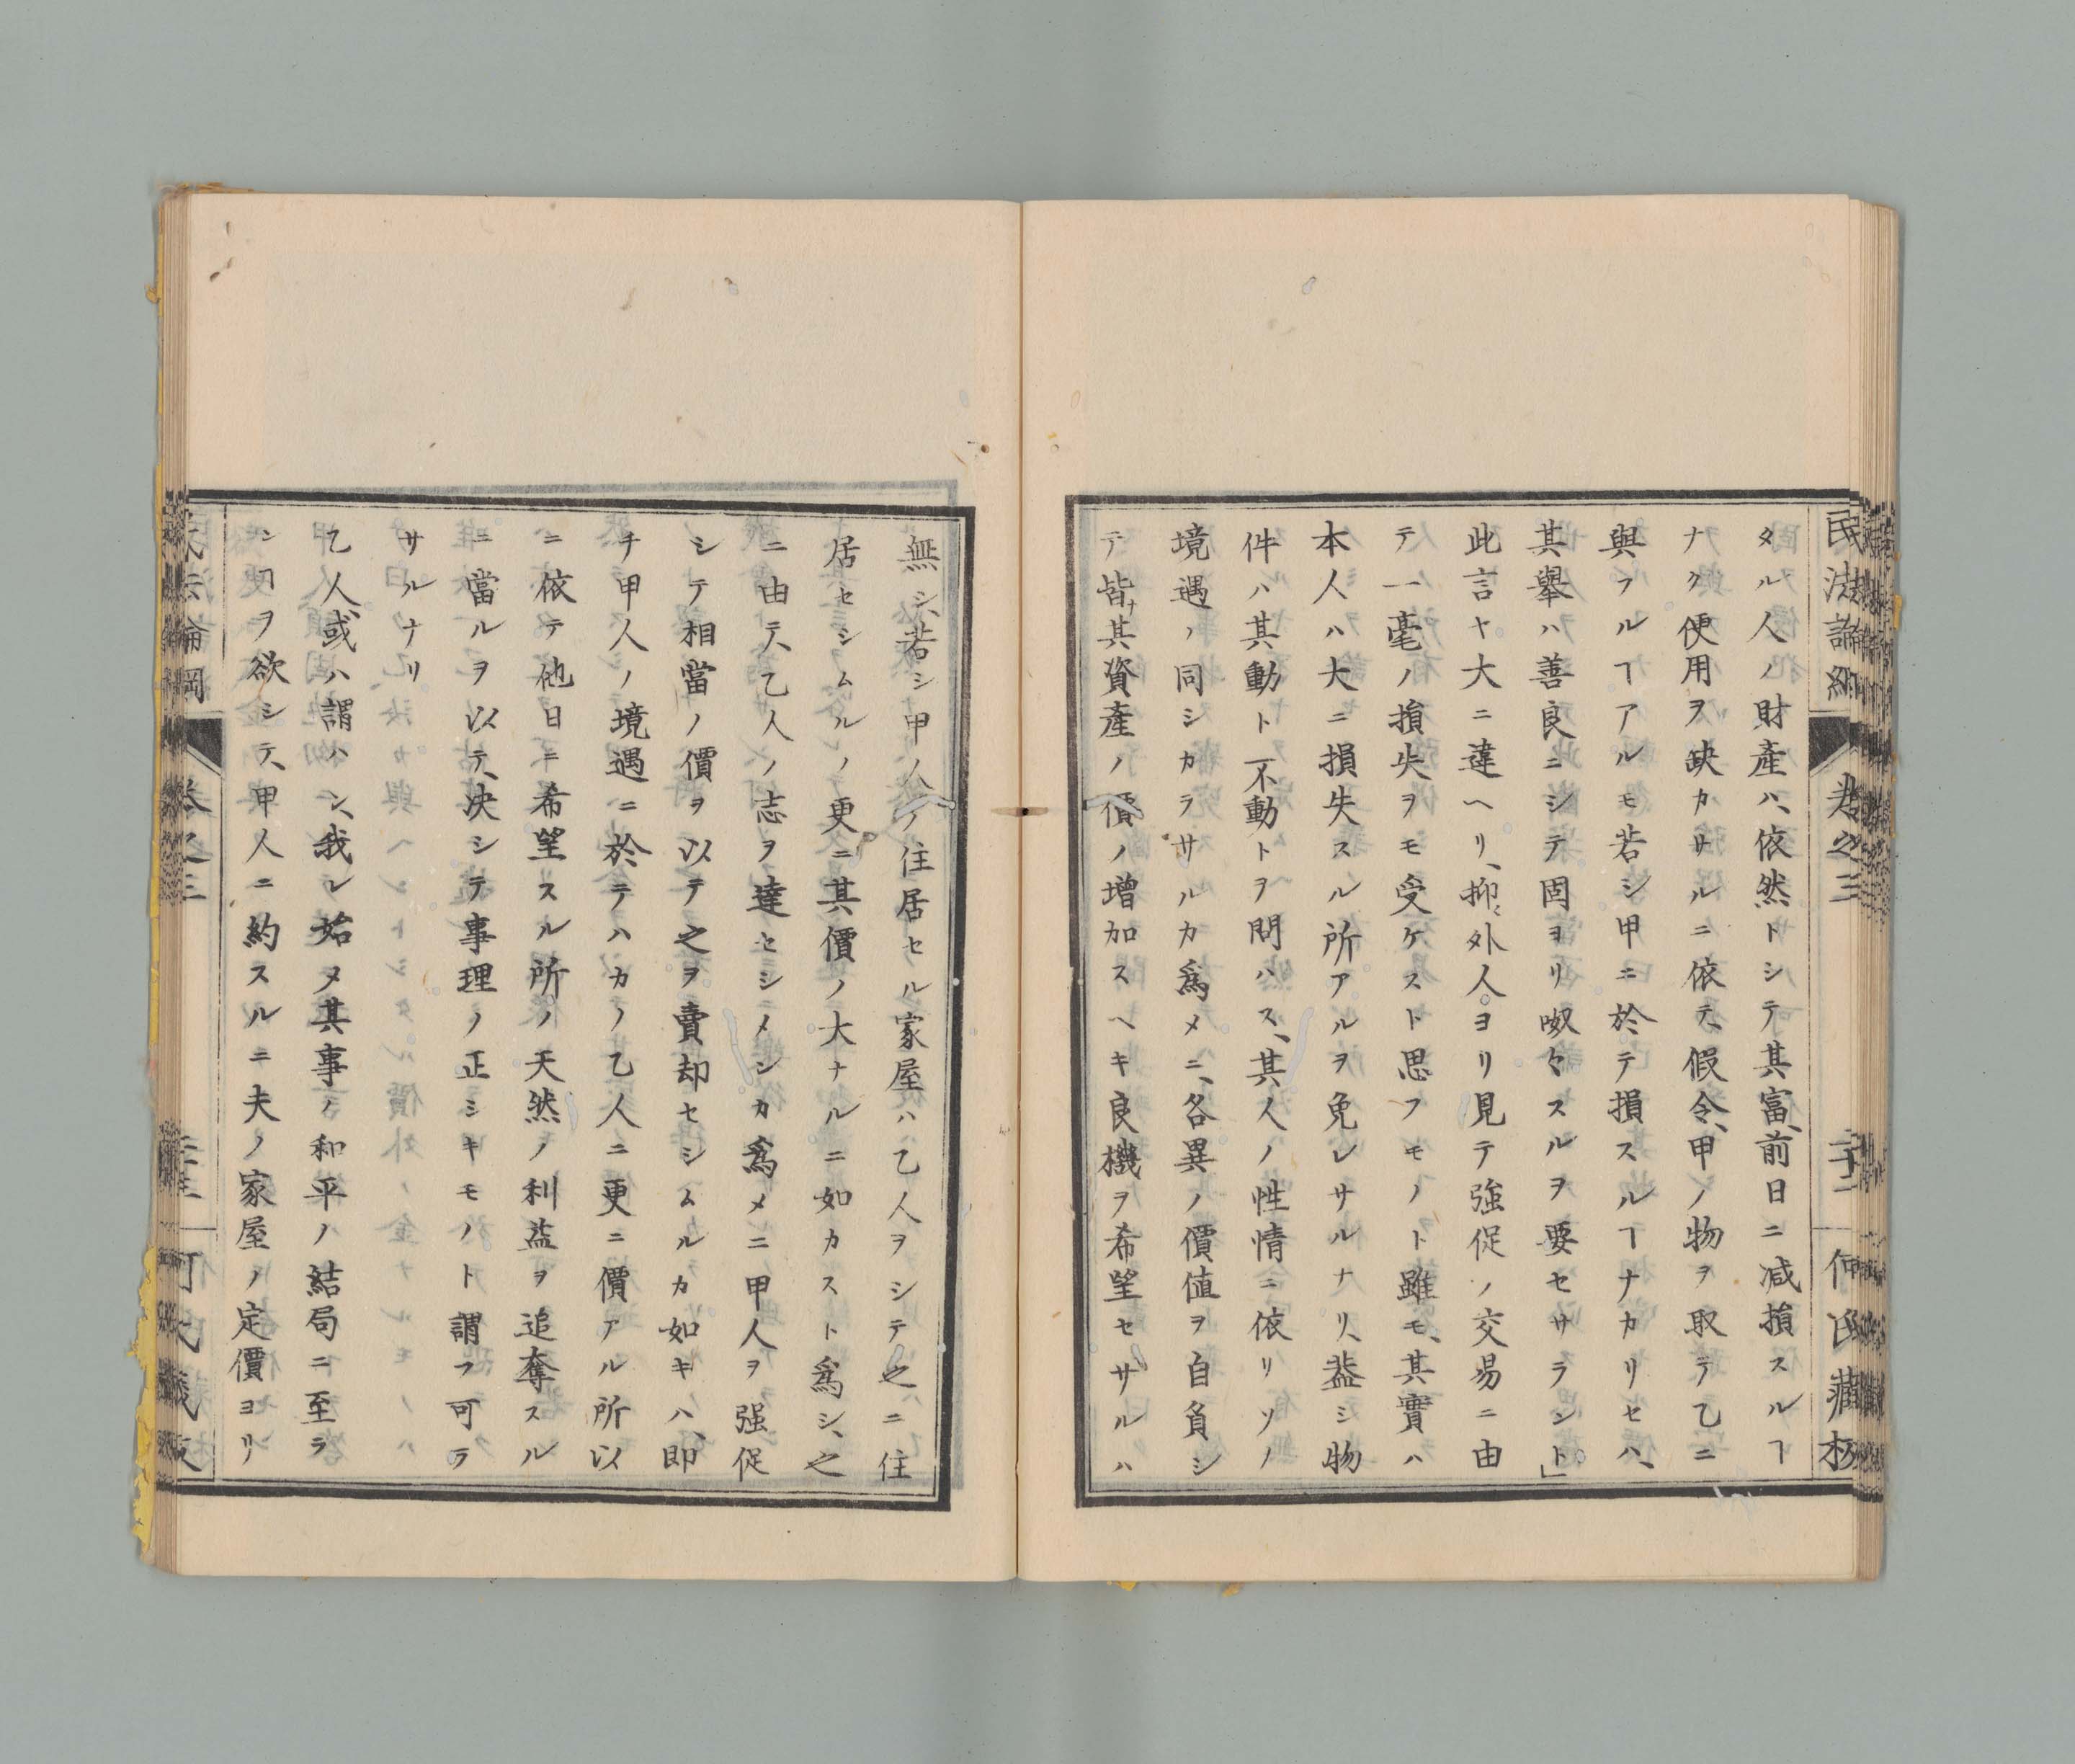 民法論綱 卷之三 二十二 何氏藏板
タル人ノ財產ハ、依然トシテ其富、前日ニ减損スルヿ
ナク便用ヲ缺カサルニ依テ、假令、甲ノ物ヲ取テ乙ニ
與フルヿアルモ若シ甲ニ於テ損スルヿナカリセハ、
其擧ハ善良ニシテ固ヨリ呶々スルヲ要セサラント」
此言ヤ大ニ違ヘリ、抑々外人ヨリ見テ強促ノ交易ニ由
テ一毫ノ損失ヲモ受ケスト思フモノト雖モ、其實ハ
本人ハ大ニ損失スル所アルヲ免レサルナリ、蓋シ物
件ハ其動ト不動トヲ問ハス、其人ノ性情ニ依リソノ
境遇ノ同シカラサルカ爲メニ、各異ノ價値ヲ自負シ
テ皆ナ其資產ノ價ノ增加スヘキ良機ヲ希望セサルハ
無シ、若シ甲人ノ住居セル家屋ハ乙人ヲシテ之ニ住
居セシムルノ更ニ其價ノ大ナルニ如カスト爲シ、之
ニ由テ、乙人ノ志ヲ達セシメンカ爲メニ甲人ヲ强促
シテ相當ノ價ヲ以テ之ヲ賣却セシムルカ如キハ、即
チ甲人ノ境遇ニ於テハカノ乙人ニ更ニ價アル所以
ニ依テ他日ニ希望スル所ノ天然ノ利益ヲ追奪スル
ニ當ルヲ以テ、决シテ事理ノ正シキモノト謂フ可ラ
サルナリ
乙人或ハ謂ハン、我レ始メ其事ノ和平ノ結局ニ至ラ
ンヿヲ欲シテ、甲人ニ約スルニ夫ノ家屋ノ定價ヨリ
民法論綱 卷之三 何氏藏板